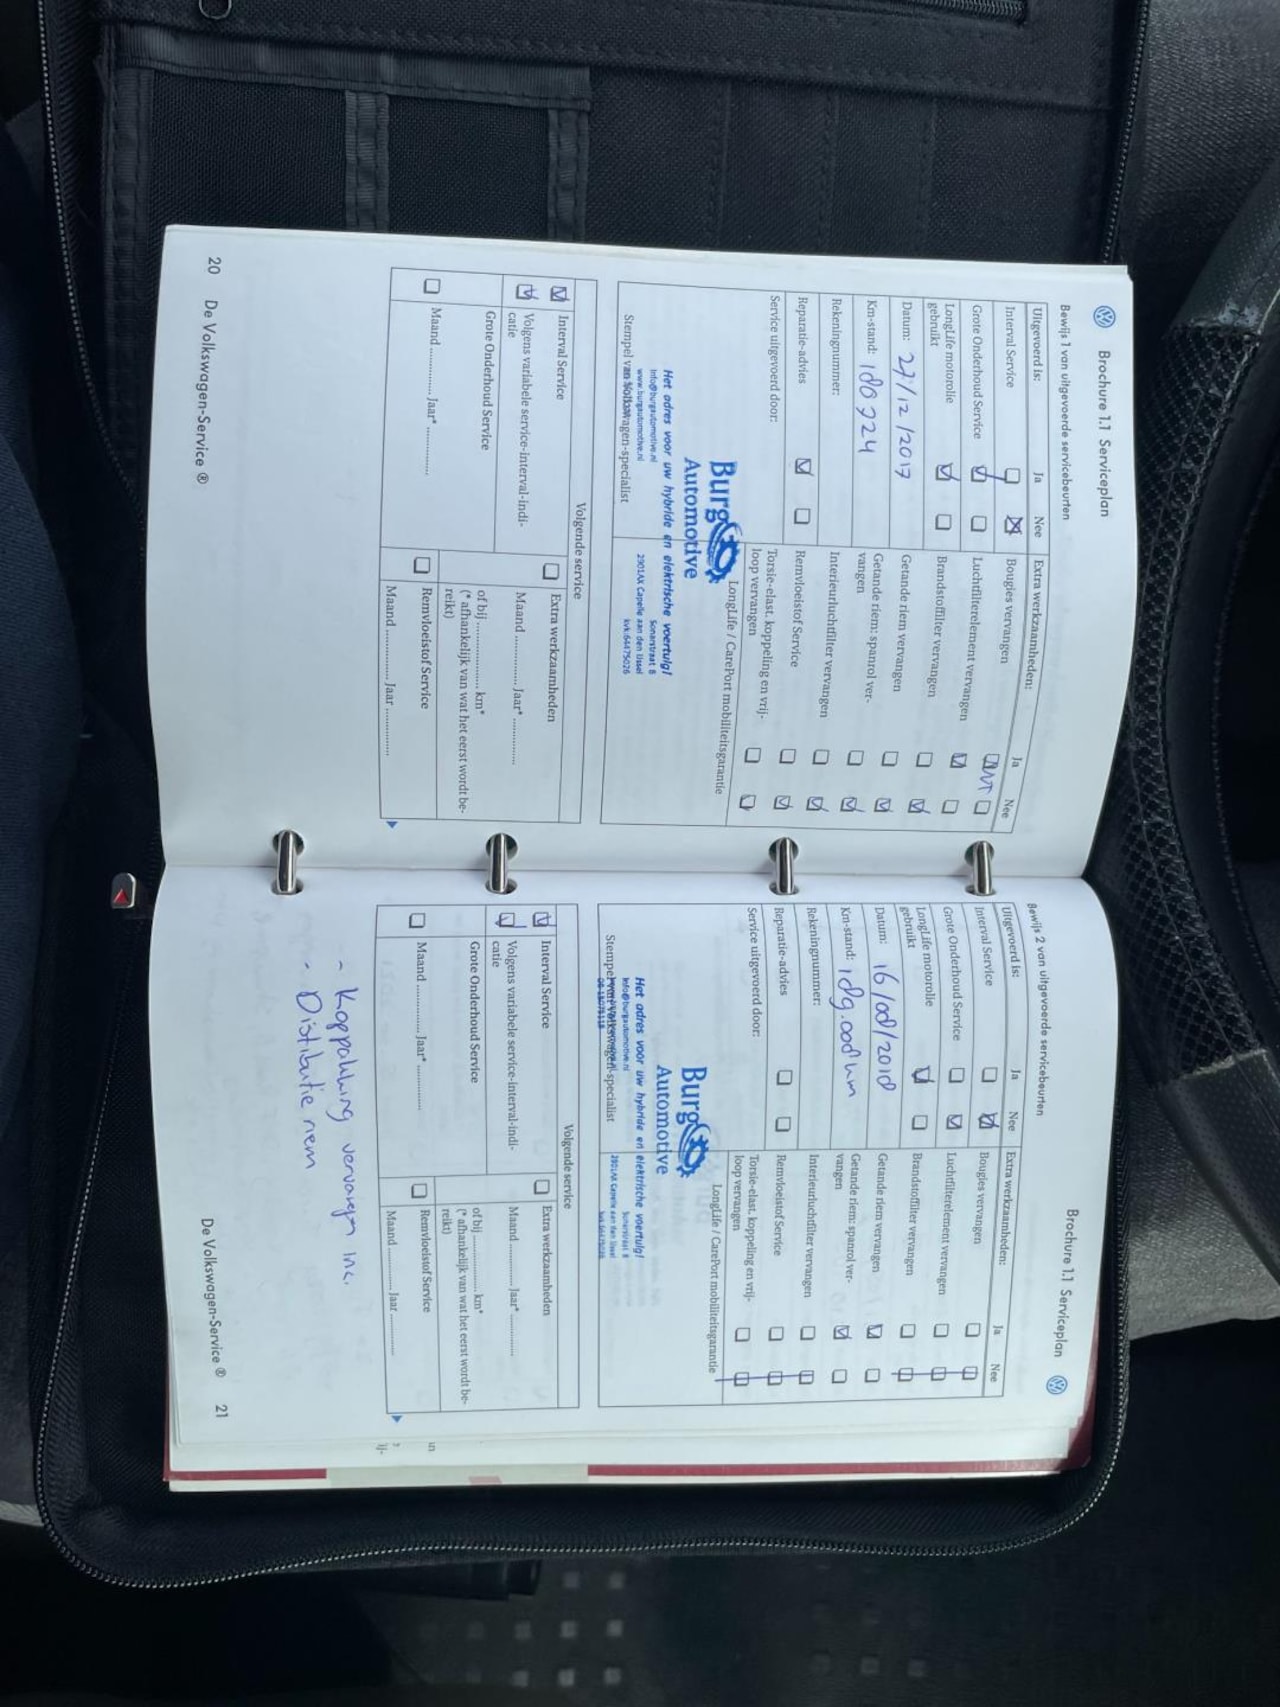 Brochure 1.1 Serviceplan
Bewijs 1 van uitgevoerde servicebeurten
Uitgevoerd is: Ja Nee
Interval Service
Grote Onderhoud Service
LongLife motorolie
gebruikt
Datum: 27/12/2017
Km-stand: 180924
Rekeningnummer:
Reparatie-advies
Service uitgevoerd door:
Extra werkzaamheden: Ja Nee
Bougies vervangen
Luchtfilterelement vervangen
Brandstoffilter vervangen
Getande riem vervangen
Getande riem: spanrol ver-
vangen
Interieurluchtfilter vervangen
Remvloeistof Service
Torsie-elast. koppeling en vrij-
loop vervangen
LongLife / CarePort mobiliteitsgarantie
Burg
Automotive
Het adres voor uw hybride en elektrische voertuig!
info@burgautomotive.nl
www.burgautomotive.nl
Sonarstraat 8
2901AX Capelle aan den IJssel
kvk:64475026
Stempel van Volkswagen-specialist
Volgende service
Interval Service
Volgens variabele service-interval-indi-
catie
Grote Onderhoud Service
Maand .............. Jaar* ..............
Extra werkzaamheden
Maand .............. Jaar* ..............
of bij .................. km*
(* afhankelijk van wat het eerst wordt be-
reikt)
Remvloeistof Service
Maand .............. Jaar ..............
20 De Volkswagen-Service ®
Brochure 1.1 Serviceplan
Bewijs 2 van uitgevoerde servicebeurten
Uitgevoerd is: Ja Nee
Interval Service
Grote Onderhoud Service
LongLife motorolie
gebruikt
Datum: 16/08/2018
Km-stand: 189.008 km
Rekeningnummer:
Reparatie-advies
Service uitgevoerd door:
Extra werkzaamheden: Ja Nee
Bougies vervangen
Luchtfilterelement vervangen
Brandstoffilter vervangen
Getande riem vervangen
Getande riem: spanrol ver-
vangen
Interieurluchtfilter vervangen
Remvloeistof Service
Torsie-elast. koppeling en vrij-
loop vervangen
LongLife / CarePort mobiliteitsgarantie
Burg
Automotive
Het adres voor uw hybride en elektrische voertuig!
info@burgautomotive.nl
Sonarstraat 8
2901AX Capelle aan den IJssel
Stempel van Volkswagen-specialist
Volgende service
Interval Service
Volgens variabele service-interval-indi-
catie
Grote Onderhoud Service
Maand .............. Jaar* ..............
Extra werkzaamheden
Maand .............. Jaar* ..............
of bij .................. km*
(* afhankelijk van wat het eerst wordt be-
reikt)
Remvloeistof Service
Maand .............. Jaar ..............
- Koppakking vervangen inc.
- Distributie riem
De Volkswagen-Service ® 21